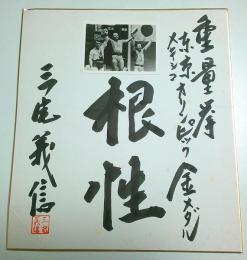 重量挙
東京オリンピック 金メダル
メキシコ
根性
三宅義信